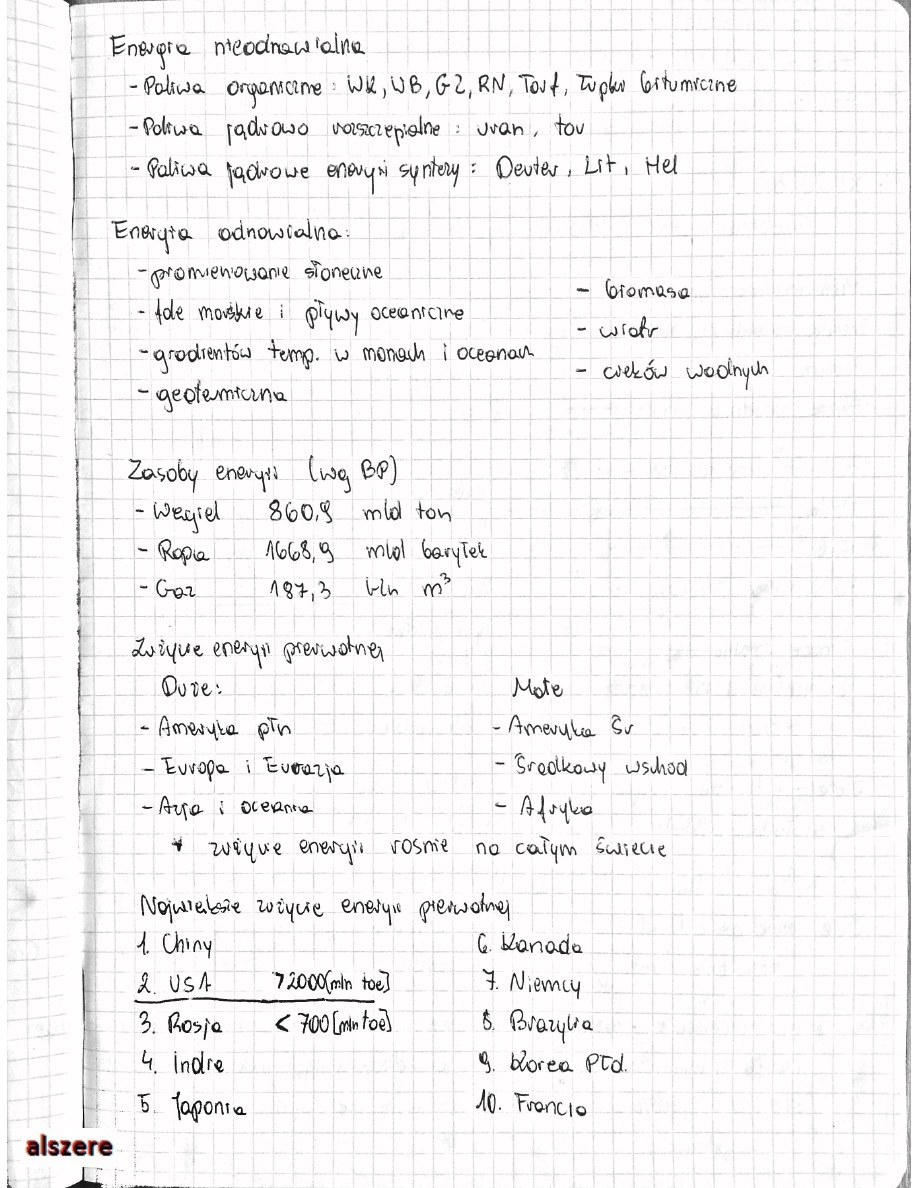 Energia nieodnawialna
- Paliwa organiczne: WK, WB, GZ, RN, Torf, Łupki bitumiczne
- Paliwa jądrowo rozszczepialne: uran, tor
- Paliwa jądrowe energii syntezy: Deuter, Lit, Hel
Energia odnawialna:
- promieniowanie słoneczne
- fale morskie i pływy oceaniczne
- gradientów temp. w morzach i oceanach
- geotermiczna
- biomasa
- wiatr
- cieków wodnych
Zasoby energii (wg BP)
- Węgiel 860,9 mld ton
- Ropa 1668,9 mld baryłek
- Gaz 187,3 bln m³
Zużycie energii pierwotnej
Duże:
- Ameryka płn
- Europa i Eurazja
- Azja i oceania
Małe
- Ameryka Śr
- Środkowy wschód
- Afryka
* zużycie energii rośnie na całym świecie
Największe zużycie energii pierwotnej
1. Chiny
2. USA >2000[mln toe]
3. Rosja < 700[mln toe]
4. Indie
5. Japonia
6. Kanada
7. Niemcy
8. Brazylia
9. Korea Płd.
10. Francja
alszere